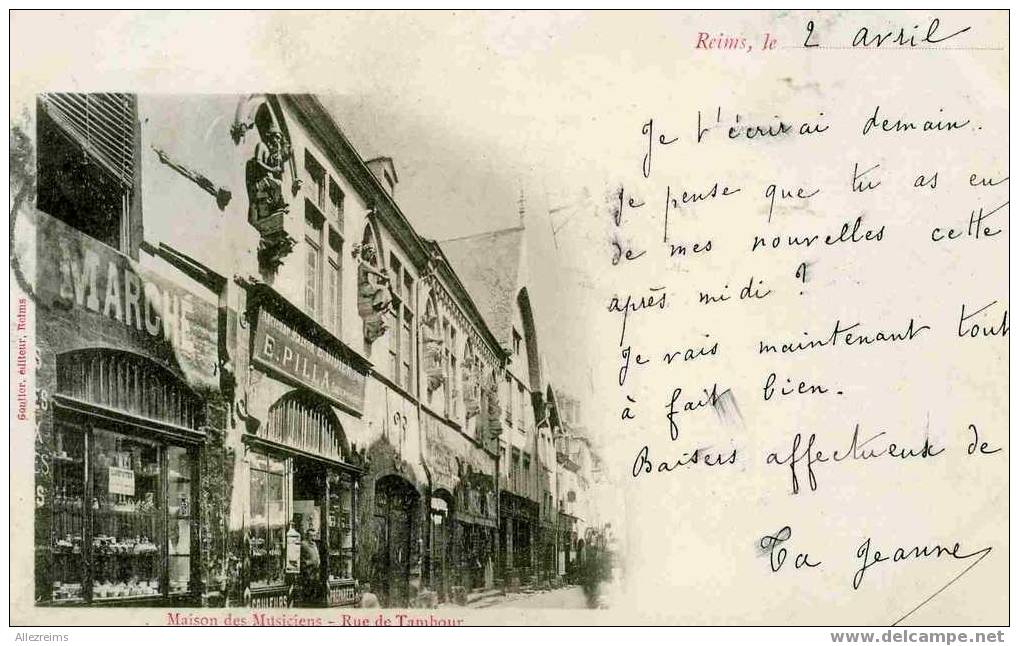 Reims, le 2 avril
Je t'écrirai demain.
Je pense que tu as eu
de mes nouvelles cette
après midi ?
Je vais maintenant tout
à fait bien.
Baisers affectueux de
Ta Jeanne
MARCHÉ
E. PILLA
COULEURS
PRÉPARÉES
Goulier, éditeur, Reims
Maison des Musiciens - Rue de Tambour
Allezreims
www.delcampe.net